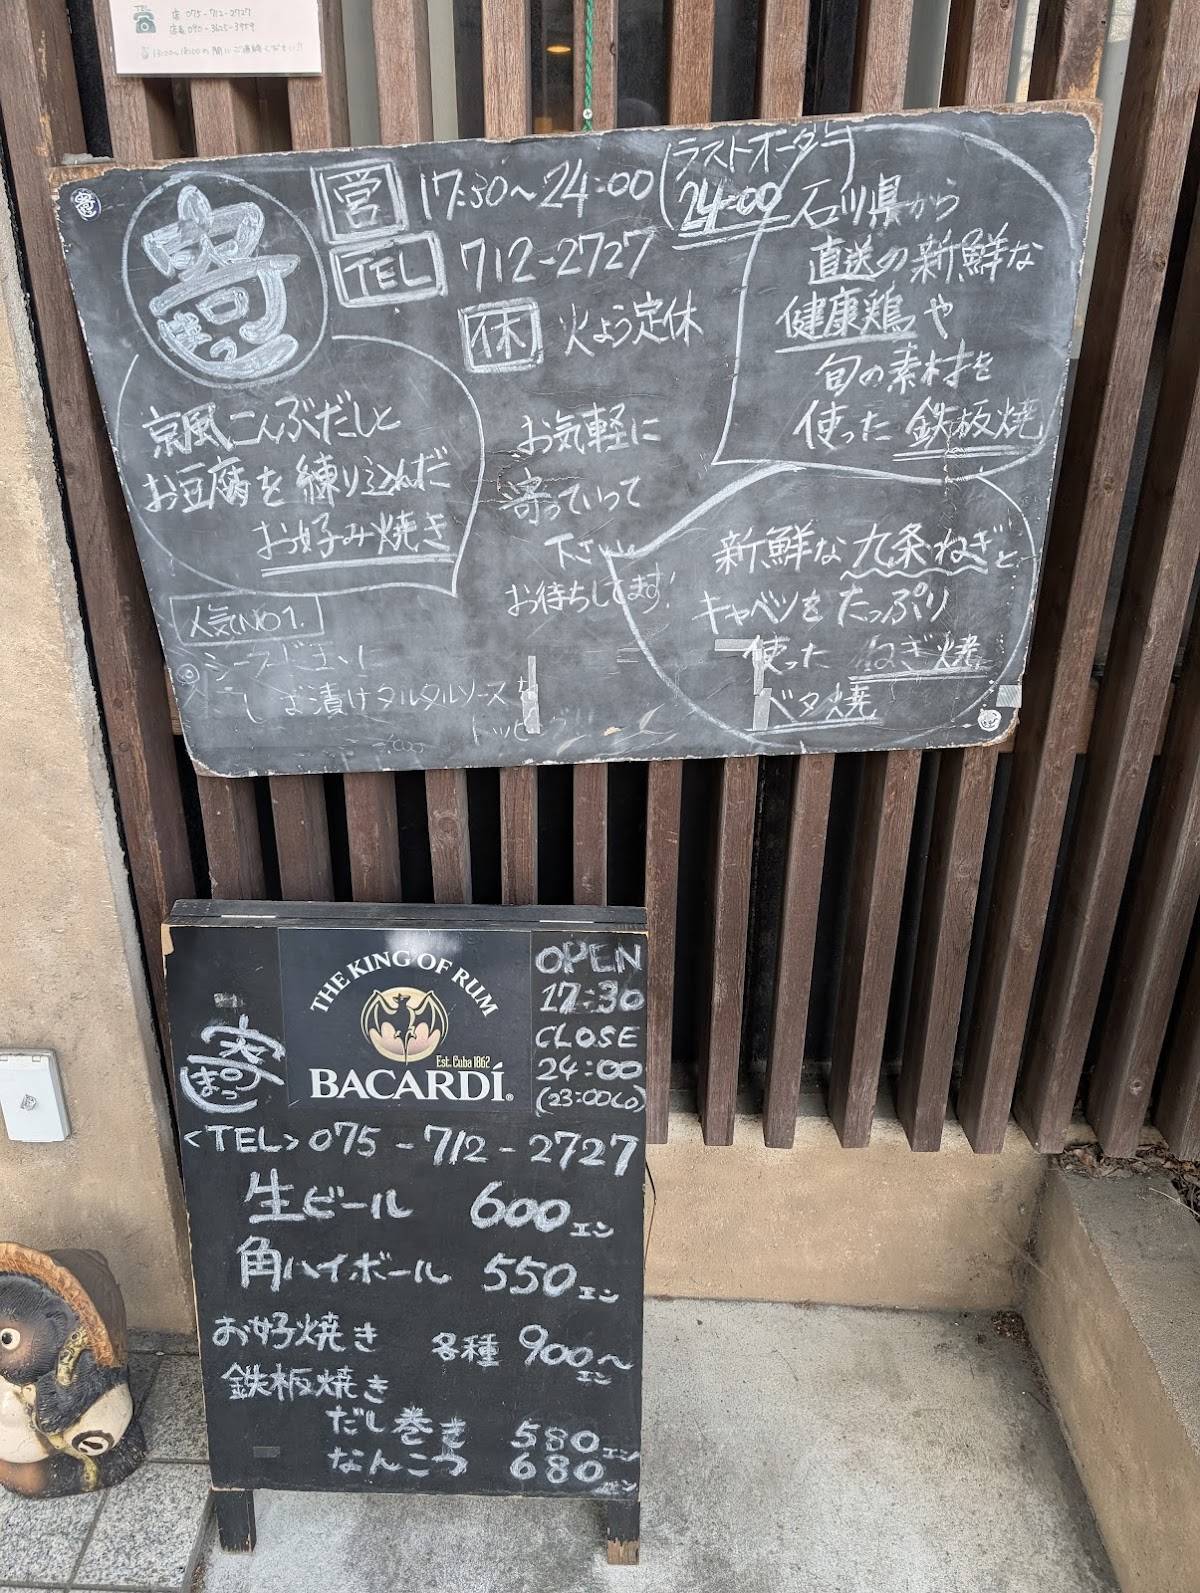 TEL
店 075-712-2727
店長 090-3625-3959
営 17:30~24:00 (ラストオーダー
24:00
TEL 712-2727
休 火よう定休
寄
まつ
京風こんぶだしと
お豆腐を練り込んだ
お好み焼き
お気軽に
寄っていって
下さい。
お待ちしてます!
石川県から
直送の新鮮な
健康鶏や
旬の素材を
使った 鉄板焼
新鮮な九条ねぎと
キャベツをたっぷり
使った ねぎ焼
ベタ焼
人気NO1.
タルタルソース
THE KING OF RUM
Est. Cuba 1862
BACARDÍ
寄
まつ
OPEN
17:30
CLOSE
24:00
(23:00LO)
<TEL> 075-712-2727
生ビール 600エン
角ハイボール 550エン
お好焼き 各種 900~
エン
鉄板焼き
だし巻き 580エン
なんこつ 680エン